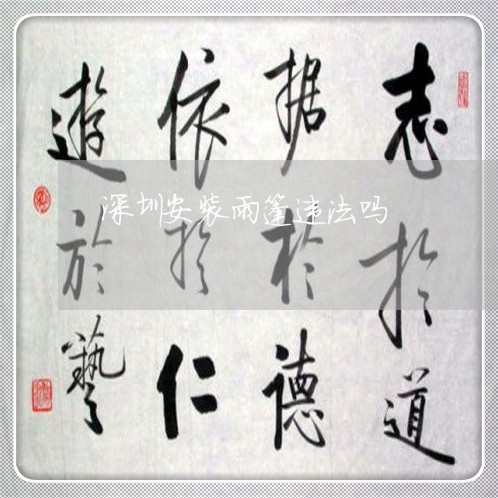 志於道
据於德
依於仁
遊於藝
深圳安装雨篷违法吗